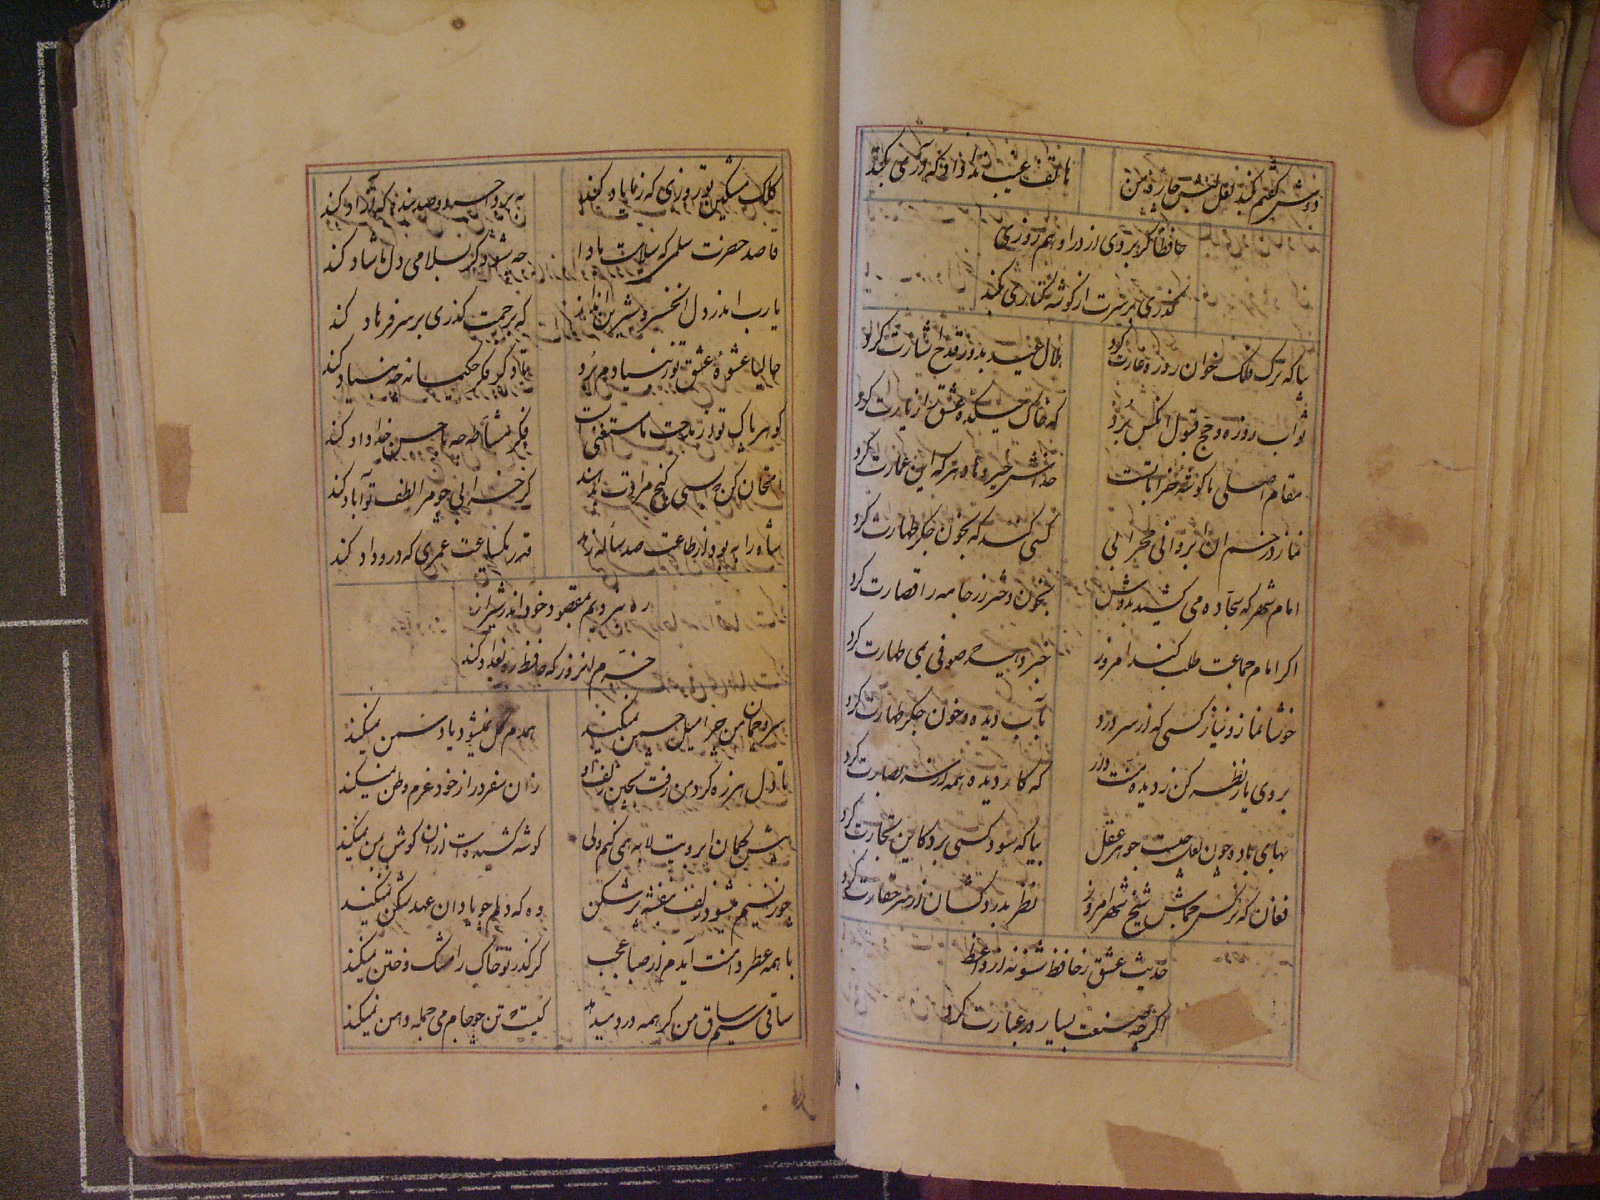 دوش گفتم بکند لعل لبش چاره من هاتف غیب ندا داد که آری بکند
حافظا گر نروی از در او هم روزی
گذری بر سرت از گوشه کناری بکند
بیا که ترک فلک خوان روزه غارت کرد هلال عید بدور قدح اشارت کرد
ثواب روزه و حج قبول آنکس برد که خاک میکده عشق را زیارت کرد
مقام اصلی ما گوشه خراباتست خداش خیر دهاد هر که این عمارت کرد
نماز در خم آن ابروانی محرابی کسی کند که بخون جگر طهارت کرد
امام شهر که سجاده می کشید بدوش بخون دختر رز جامه را قصارت کرد
اگر امام جماعت طلب کند امروز خبر دهید که صوفی بمی طهارت کرد
خوشا نماز و نیاز کسی که از سر درد بآب دیده و خون جگر طهارت کرد
بروی یار نظر کن ز دیده منت دار که کار دیده همه از سر بصارت کرد
بهای باده چون لعل چیست جوهر عقل بیا که سود کسی برد کاین تجارت کرد
فغان که نرگس جماش شیخ شهر امروز نظر بدردکشان از سر حقارت کرد
حدیث عشق ز حافظ شنو نه از واعظ
اگرچه صنعت بسیار در عبارت کرد
کلک مشکین تو روزی که ز ما یاد کند ببرد اجر دو صد بنده که آزاد کند
قاصد حضرت سلمی که سلامت بادا چه شود گر بسلامی دل ما شاد کند
یارب اندر دل آن خسرو شیرین انداز که برحمت گذری بر سر فرهاد کند
حالیا عشوه عشق تو ز بنیادم برد تا دگر فکر حکیمانه چه بنیاد کند
گوهر پاک تو از مدحت ما مستغنیست فکر مشاطه چه با حسن خداداد کند
امتحان کن که بسی گنج مرادت بدهند گر خرابی چو مرا لطف تو آباد کند
شاه را به بود از طاعت صد ساله زهد قدر یکساعت عمری که درو داد کند
ره نبردیم بمقصود خود اندر شیراز
خرم آنروز که حافظ ره بغداد کند
سرو چمان من چرا میل چمن نمیکند همدم گل نمیشود یاد سمن نمیکند
تا دل هرزه گرد من رفت بچین زلف او زان سفر دراز خود عزم وطن نمیکند
پیش کمان ابرویت لابه همی کنم ولی گوشه کشیده است ازان گوش بمن نمیکند
چون ز نسیم میشود زلف بنفشه پرشکن وه که دلم چو یاد ازان عهدشکن نمیکند
با همه عطر دامنت آیدم از صبا عجب کز گذر تو خاک را مشک و ختن نمیکند
ساقی سیم ساق من گر همه درد میدهد کیست که تن چو جام می جمله دهن نمیکند